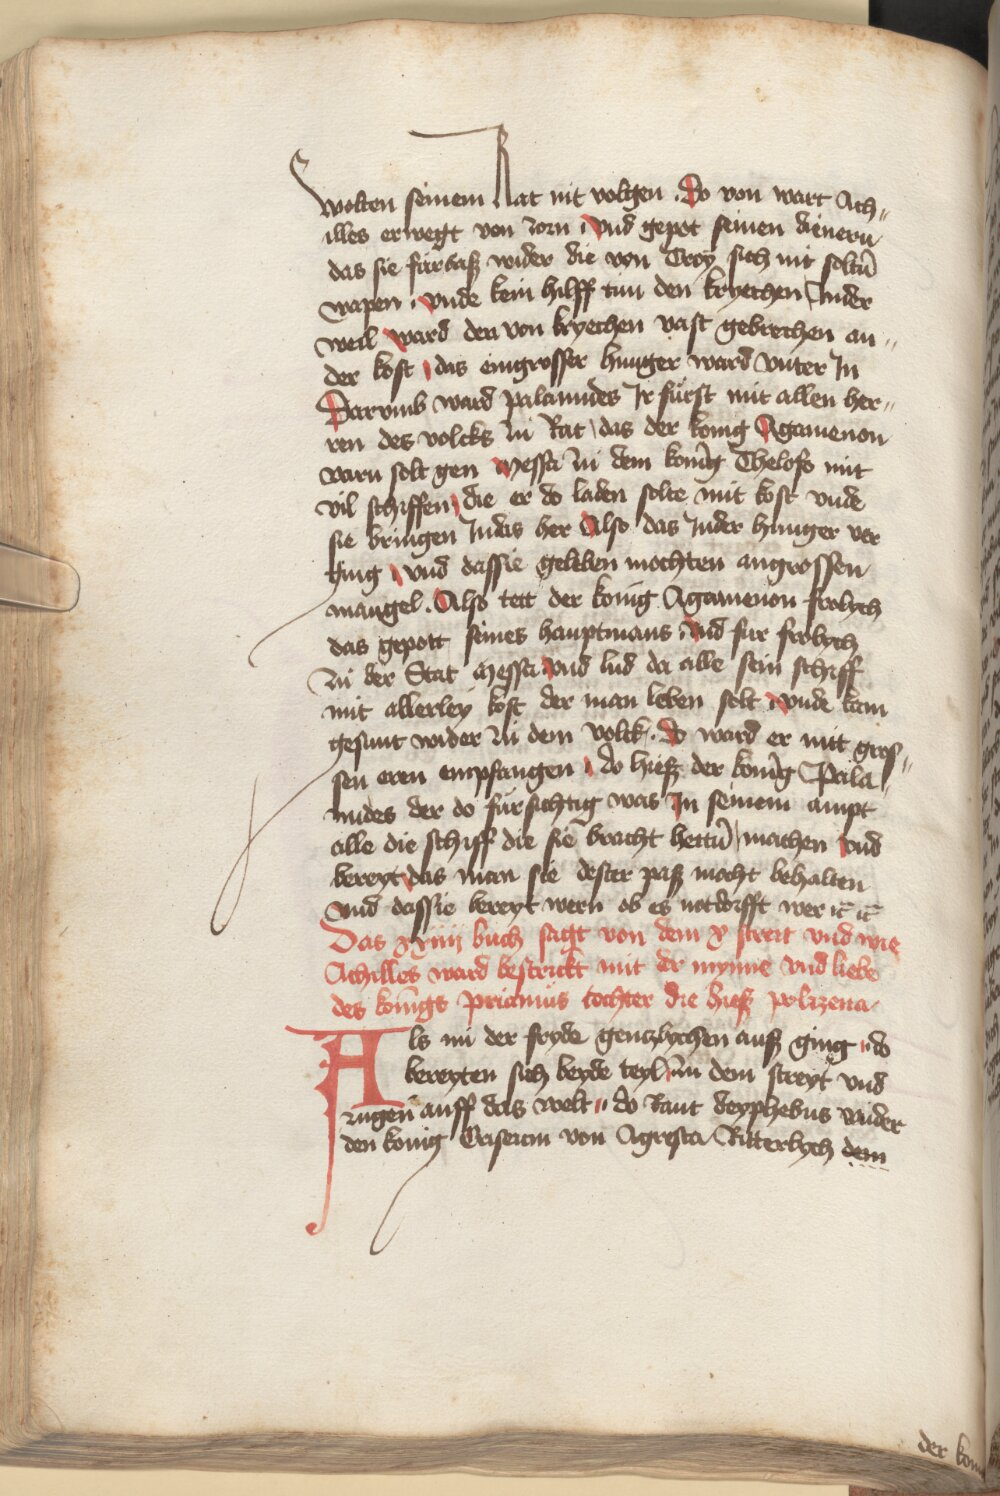 wolten seinem Rat nit volgen . Do von wart Ach„
illes erwegt von zorn , vnd gepot seinen dienern
das sie fürbaß wider die von Troy sich nit soltn̄
wapen , vnde kein hilff tun den kryechen Inder
weil ward den von kryechen vast gebrechen an„
der kost , das eingrosser hunger ward vnter In
Darvmb ward palamides Ir fürst mit allen her„
ren des volcks zu Rat , das der konig Agamenon
varn solt gen Messa zu dem konīg Thelofo mit
vil schiffen , die er do laden solte mit kost vnde
sie bringen Indas her Also das Inder hunger ver
ging , vnd dassie geleben mochten angrossen
mangel . Also tett der konig Agamenon frolych
das gepott seines hauptmans , vnd fur frolych
zu der Stat Messa vnd lud da alle sein schiff
mit allerley kost der man leben solt , vnde kam
gesunt wider zu dem volck . do ward er mit gros„
sen eren empfangen , do hieß der konīg Pala„
mides der do fürsichtig was In seinem ampt
alle die schiff die sie bracht hettn̄ , machen vnd
bereyt das man sie dester paß mocht behalten
vnd dassie bereyt wern ob es notdorfft wer ꝛc̄ ꝛc̄
Das xxiiij buch sagt von dem x streit vnd wie
Achilles ward bestrickt mit der mynne vnd liebe
des konīgs priamus tochter die hieß polizena
Als nu der fryde genczlychen auß ging , do
bereyten sich beyde teyl zu dem streyt vnd
zugen auff das velt , do Rant deyphebus wider
den konig Criseum von Agresta Ritterlych dem
der kon